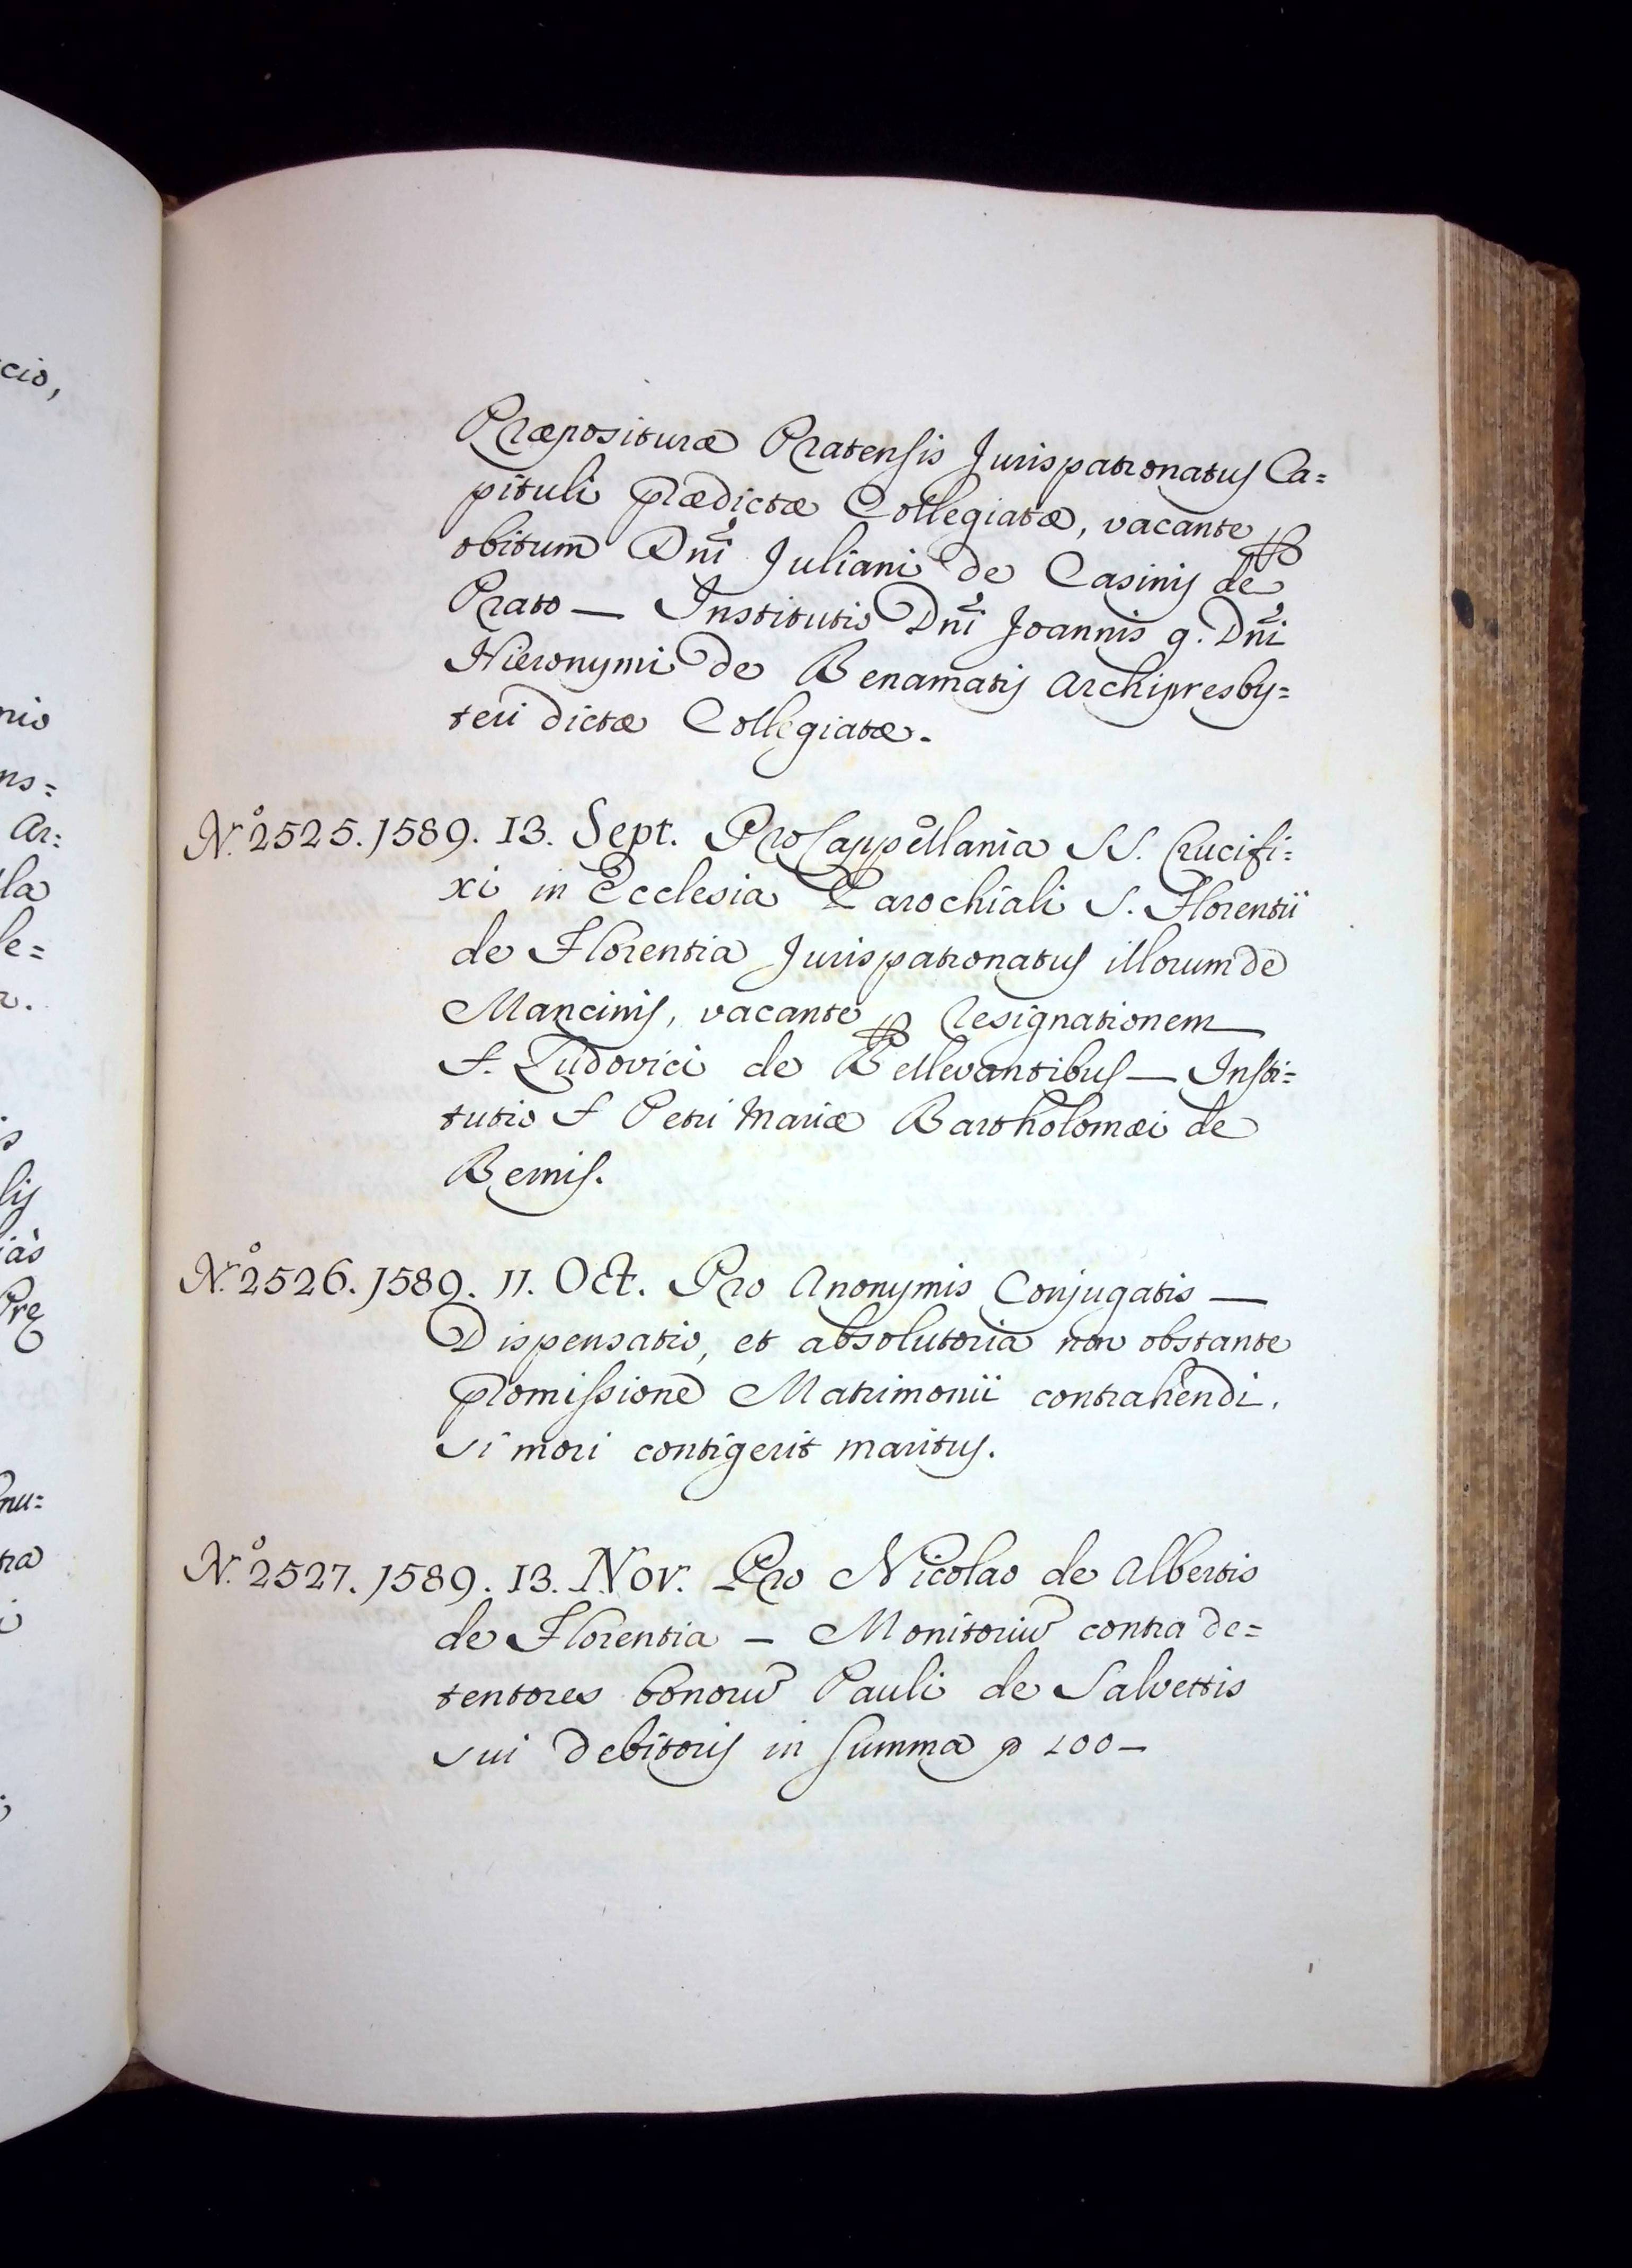 Præpositura Pratensis Jurispatronatus Ca=
pituli prædictæ Collegiatæ, vacante p
obitum Dni Juliani de Casinis de
Prato — Institutio Dni Joannis q. Dni
Hieronymi de Benamatis Archipresby=
teri dictæ Collegiatæ.
N.º 2525. 1589. 13. Sept. Pro Cappellania SS. Crucifi=
xi in Ecclesia Parochiali S. Florentii
de Florentia Jurispatronatus illorum de
Mancinis, vacante p resignationem
F. Ludovici de Bellevantibus — Insti=
tutio F Petri Mariæ Bartholomæi de
Bernis.
N.º 2526. 1589. 11. Oct. Pro Anonymis Conjugatis —
Dispensatio, et absolutoria non obstante
promissione Matrimonii contrahendi,
si mori contigerit maritus.
N.º 2527. 1589. 13. Nov. Pro Nicolao de Albertis
de Florentia — Monitoriũ contra de=
tentores bonorũ Pauli de Salvettis
sui Debitoris in summa 100 —
cio,
nio
ns=
Ar=
la
le=
r.
lis
ias
Pre
nu=
tra